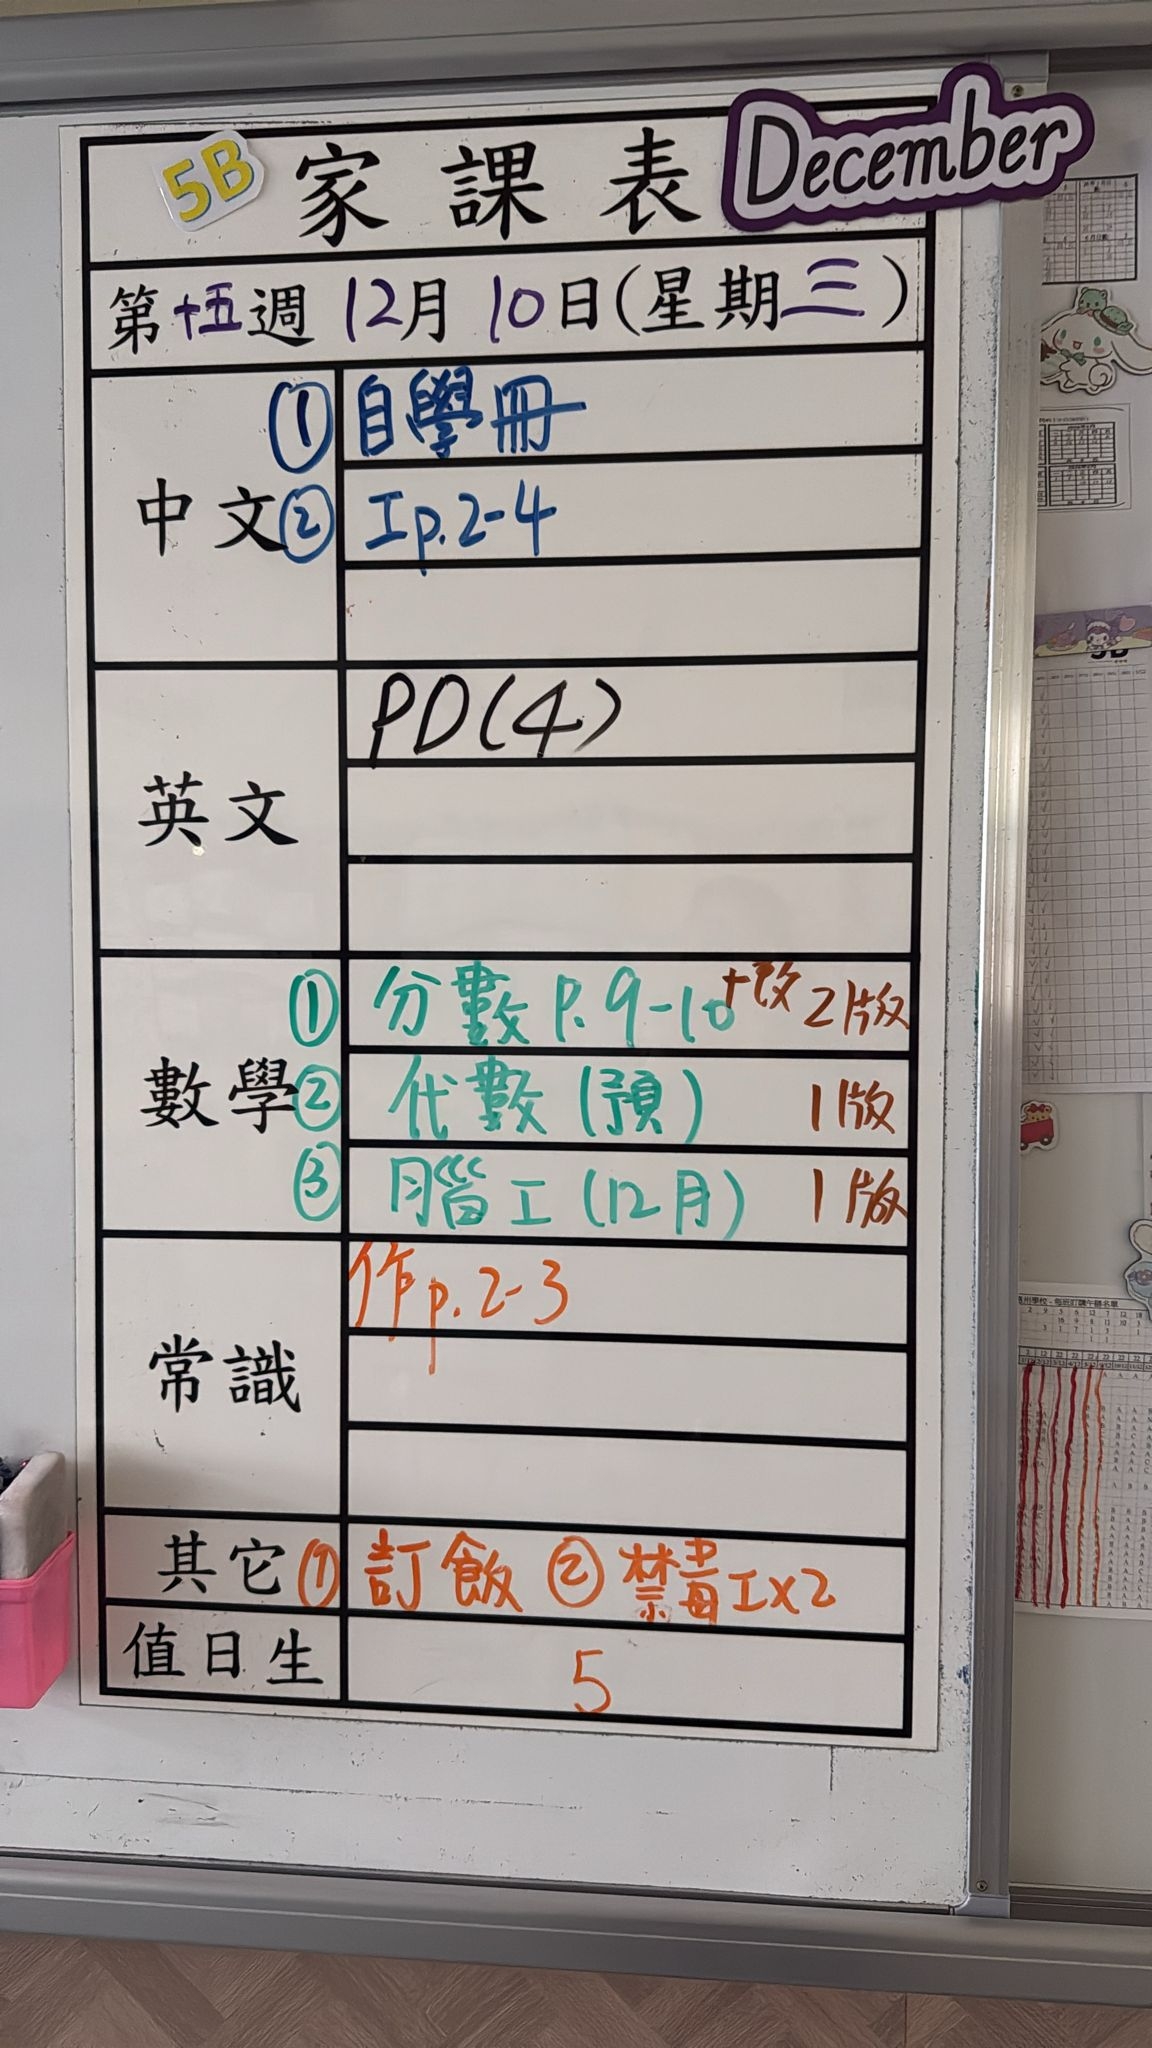 5B 家課表 December
第十五週 12月10日(星期三)
中文
① 自學冊
② 工p.2-4
英文
PD(4)
數學
① 分數 P.9-10 +改 2版
② 代數 (預) 1版
③ 腦工 (12月) 1版
常識
作p.2-3
其它 ① 訂飯 ② 禁毒工x2
值日生 5